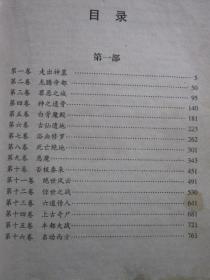 目 录
第一部
第一卷 走出神墓 5
第二卷 龙腾帝都 50
第三卷 罪恶之城 95
第四卷 神之遗骨 140
第五卷 白骨魔殿 181
第六卷 古仙遗地 223
第七卷 浴血修罗 262
第八卷 死亡绝地 301
第九卷 恶魔 345
第十卷 否极泰来 451
第十一卷 绝世风云 491
第十二卷 惊世之战 530
第十三卷 六道情人 641
第十四卷 上古奇尸 681
第十五卷 丰都大战 721
第十六卷 名动西方 761